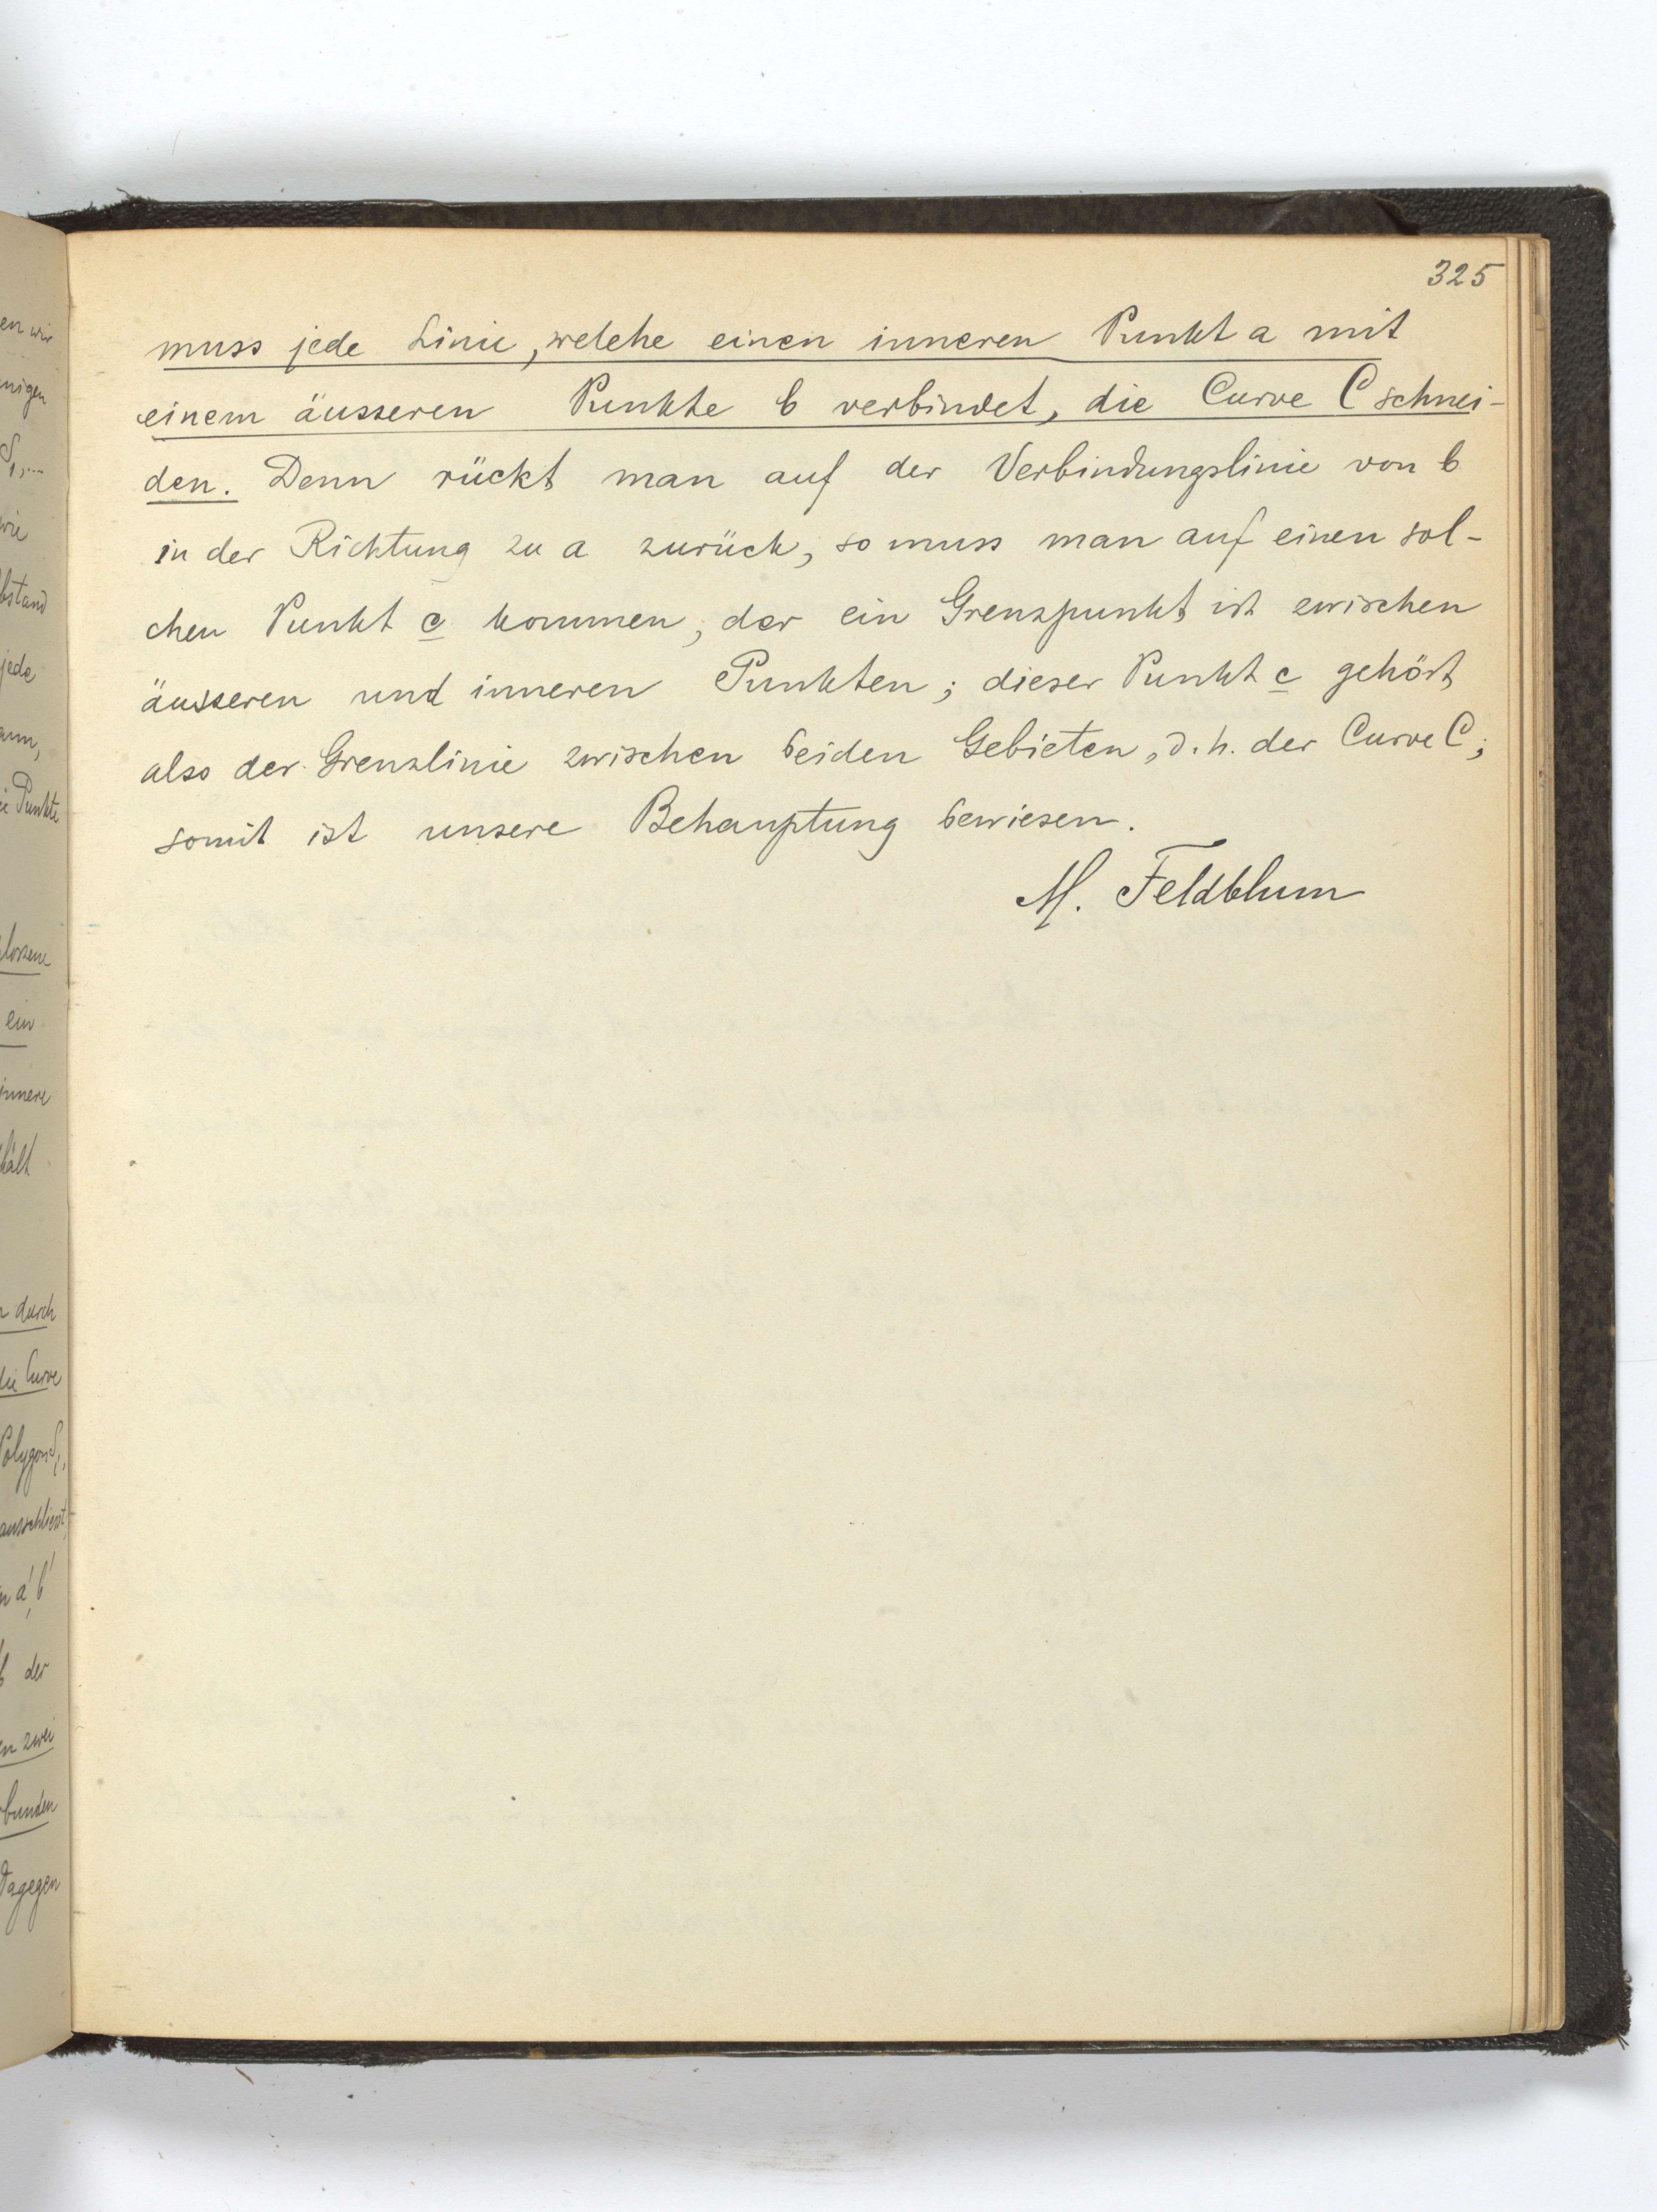 325
muss jede Linie, welche einen inneren Punkt a mit
einem äusseren Punkte b verbindet, die Curve C schnei-
den. Denn rückt man auf der Verbindungslinie von b
in der Richtung zu a zurück, so muss man auf einen sol-
chen Punkt c kommen, der ein Grenzpunkt ist zwischen
äusseren und inneren Punkten; dieser Punkt c gehört
also der Grenzlinie zwischen beiden Gebieten, d. h. der Curve C;
somit ist unsere Behauptung bewiesen.
M. Feldblum
en wir
nigen
S₁,...
wie
bstand
jede
ann,
ie Punkte
lossene
ein
innere
hält
n durch
die Curve
Polygon S₁,
ausschliesst,
n a', b'
b der
en zwei
bunden
Dagegen